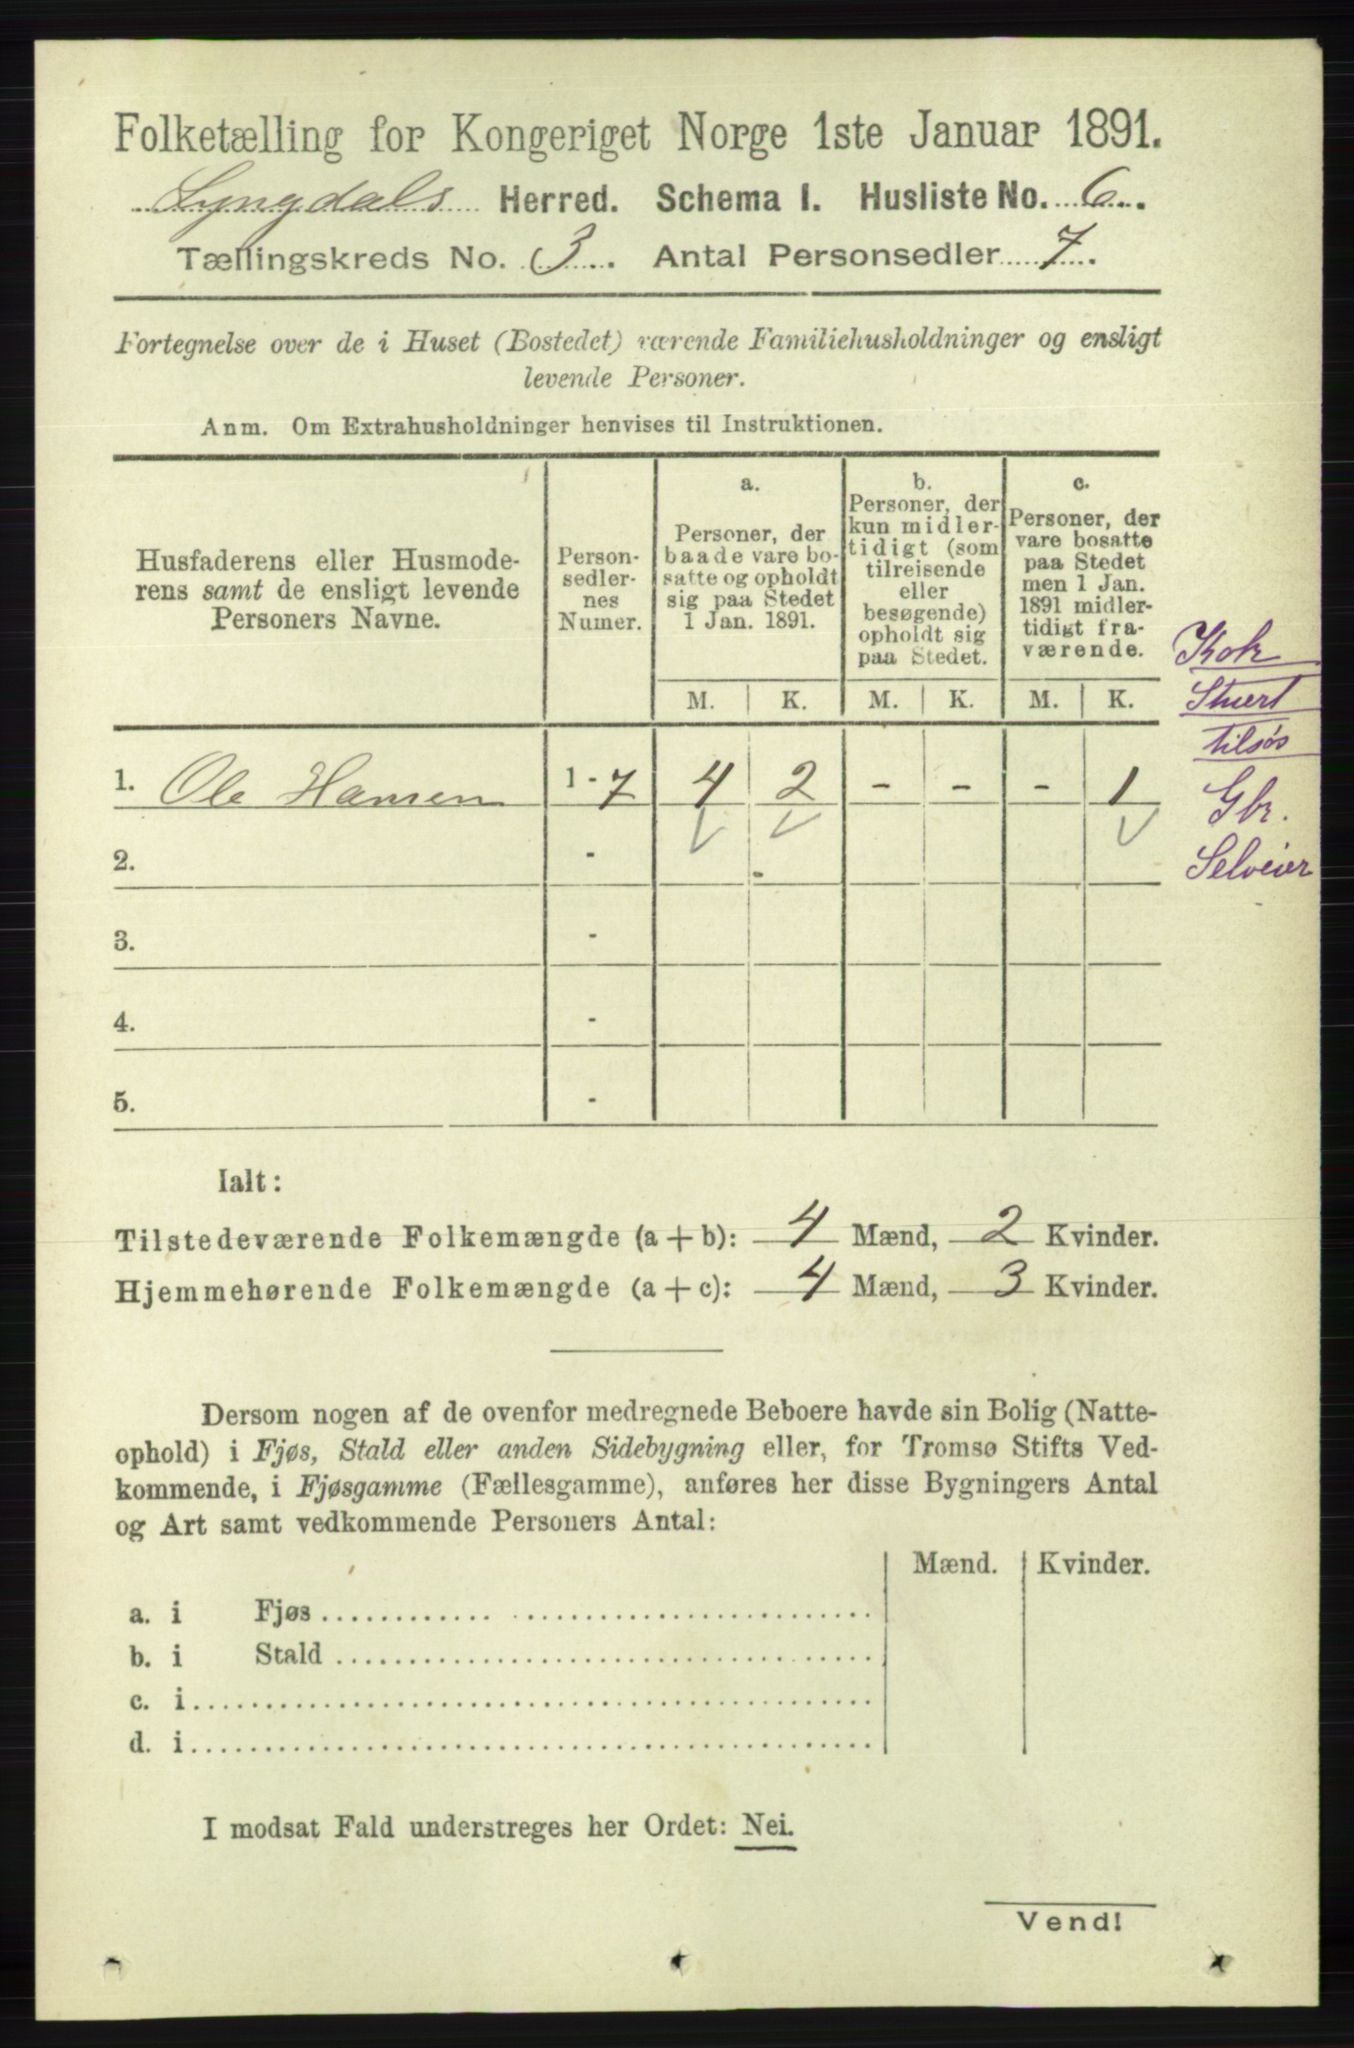 Folketælling for Kongeriget Norge 1ste Januar 1891.
Lyngdals Herred. Schema I. Husliste No. 6.
Tællingskreds No. 3. Antal Personsedler 7.
Fortegnelse over de i Huset (Bostedet) værende Familiehusholdninger og ensligt
levende Personer.
Anm. Om Extrahusholdninger henvises til Instruktionen.
Husfaderens eller Husmode-
rens samt de ensligt levende
Personers Navne.
Person-
sedler-
nes
Numer.
a.
Personer, der
baade vare bo-
satte og opholdt
sig paa Stedet
1 Jan. 1891.
b.
Personer, der
kun midler-
tidigt (som
tilreisende
eller
besøgende)
opholdt sig
paa Stedet.
c.
Personer, der
vare bosatte
paa Stedet
men 1 Jan.
1891 midler-
tidigt fra-
værende.
M. K. M. K. M. K.
1. Ole Hansen 1 - 7 4 2 - - - 1
2. -
3. -
4. -
5. -
Stuert
tilsøs
Gbr.
Selveier
Ialt:
Tilstedeværende Folkemængde (a + b): 4 Mænd, 2 Kvinder.
Hjemmehørende Folkemængde (a + c): 4 Mænd, 3 Kvinder.
Dersom nogen af de ovenfor medregnede Beboere havde sin Bolig (Natte-
ophold) i Fjøs, Stald eller anden Sidebygning eller, for Tromsø Stifts Ved-
kommende, i Fjøsgamme (Fællesgamme), anføres her disse Bygningers Antal
og Art samt vedkommende Personers Antal:
Mænd. Kvinder.
a. i Fjøs
b. i Stald
c. i
d. i
I modsat Fald understreges her Ordet: Nei.
Vend!